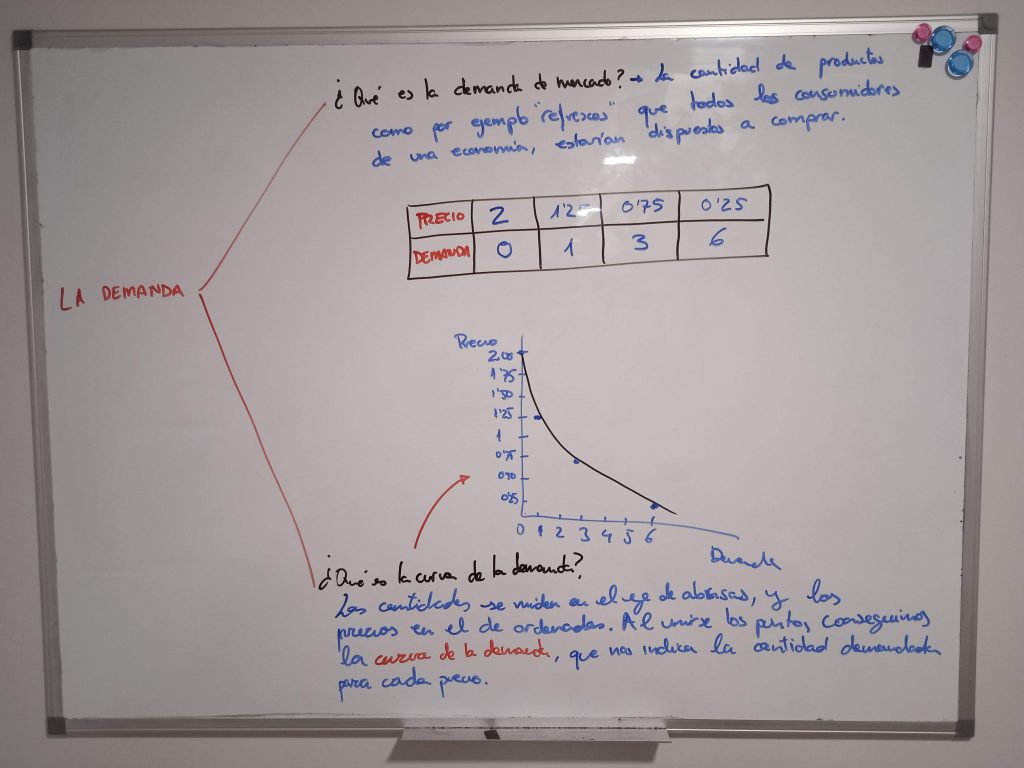 ¿Qué es la demanda de mercado? → La cantidad de productos
como por ejemplo "refrescos" que todos los consumidores
de una economía, estarían dispuestos a comprar.
PRECIO 2 1'25 0'75 0'25
DEMANDA 0 1 3 6
LA DEMANDA
Precio
2'00
1'75
1'50
1'25
1
0'75
0'50
0'25
0 1 2 3 4 5 6
Demanda
¿Qué es la curva de la demanda?
Las cantidades se miden en el eje de abscisas, y los
precios en el de ordenadas. Al unirse los puntos, conseguimos
la curva de la demanda, que nos indica la cantidad demandada
para cada precio.